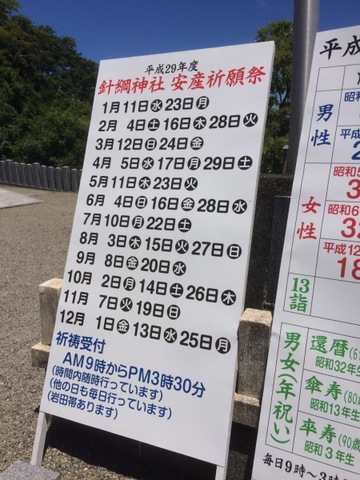 平成29年度
針綱神社 安産祈願祭
1月11日水23日月
2月 4日土16日木28日火
3月12日日24日金
4月 5日水17日月29日土
5月11日木23日火
6月 4日日16日金28日水
7月10日月22日土
8月 3日木15日火27日日
9月 8日金20日水
10月 2日月14日土26日木
11月 7日火19日日
12月 1日金13日水25日月
祈祷受付
AM9時からPM3時30分
(時間内随時行っています)
(他の日も毎日行っています)
(岩田帯あります)
平成
男性
女性
13詣
男女(年祝い)
還暦(6
昭和32年生
傘寿(80
昭和13年生
卒寿(90歳
昭和3年生
毎日9時～3時